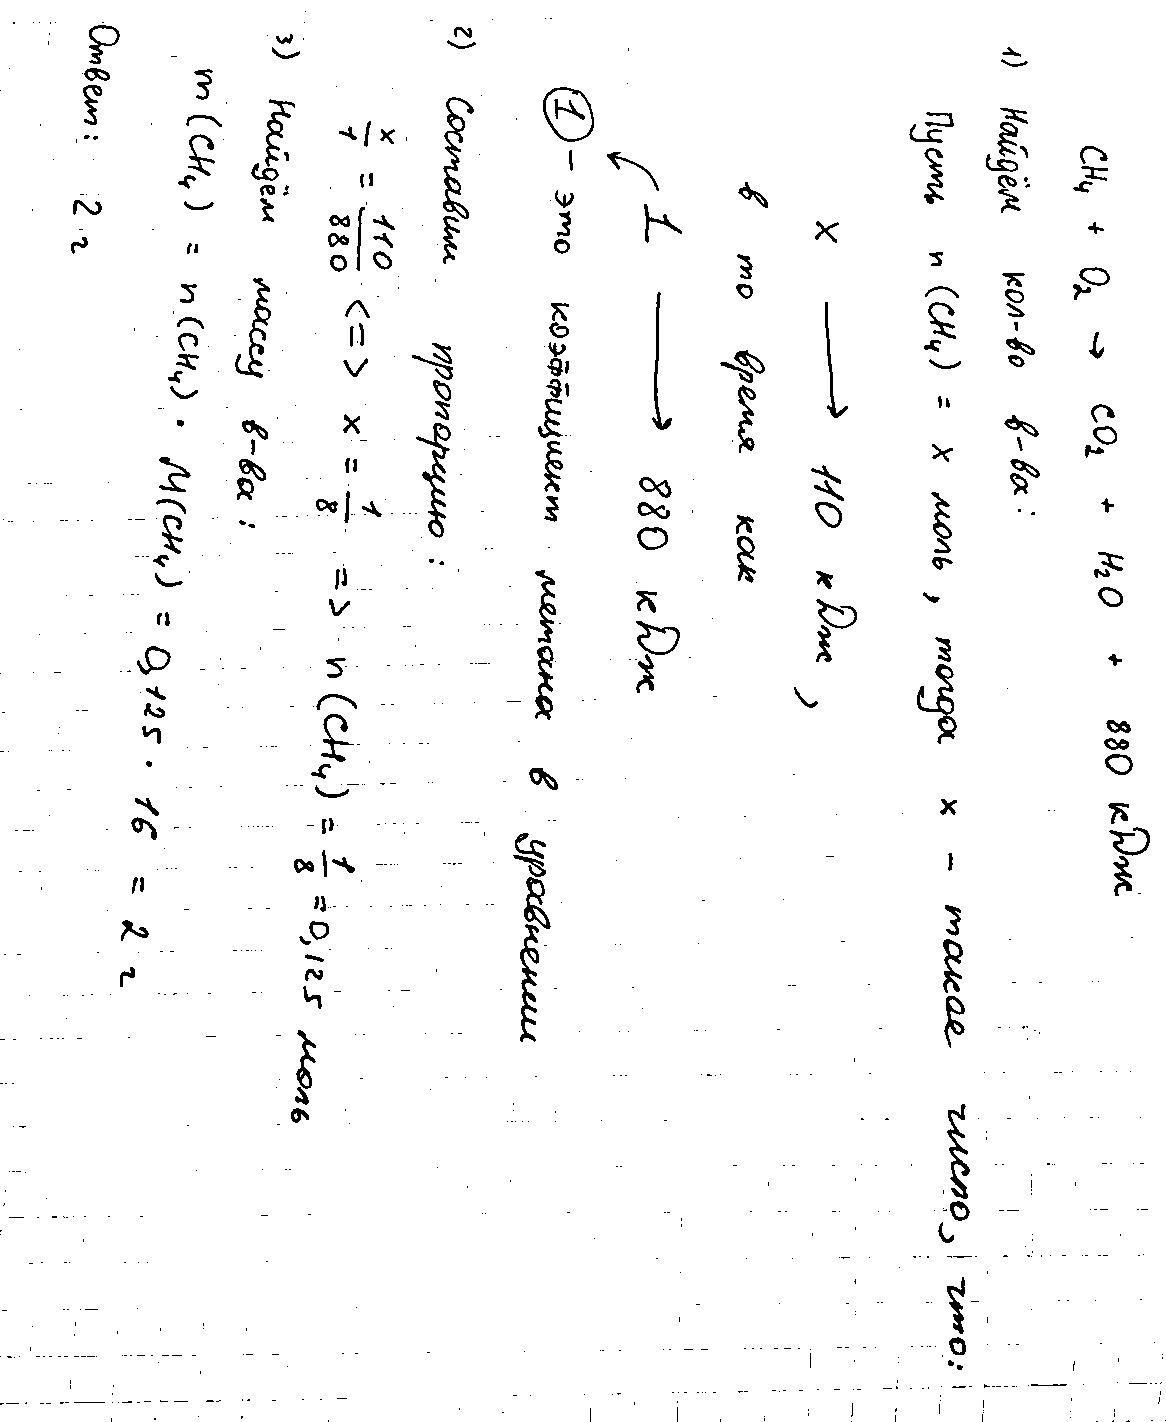 CH₄ + O₂ → CO₂ + H₂O + 880 кДж
1) Найдём кол-во в-ва:
Пусть n(CH₄) = x моль, тогда x - такое число, что:
x → 110 кДж,
в то время как
1 → 880 кДж
1 - это коэффициент метана в уравнении
2) Составим пропорцию:
x/1 = 110/880 <=> x = 1/8 => n(CH₄) = 1/8 = 0,125 моль
3) Найдём массу в-ва:
m(CH₄) = n(CH₄) · M(CH₄) = 0,125 · 16 = 2 г
Ответ: 2 г